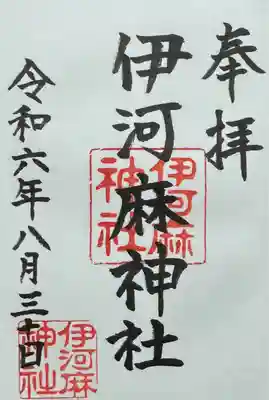 奉拝
伊河麻神社
伊河麻
神社
令和六年八月三十一日
伊河麻
神社